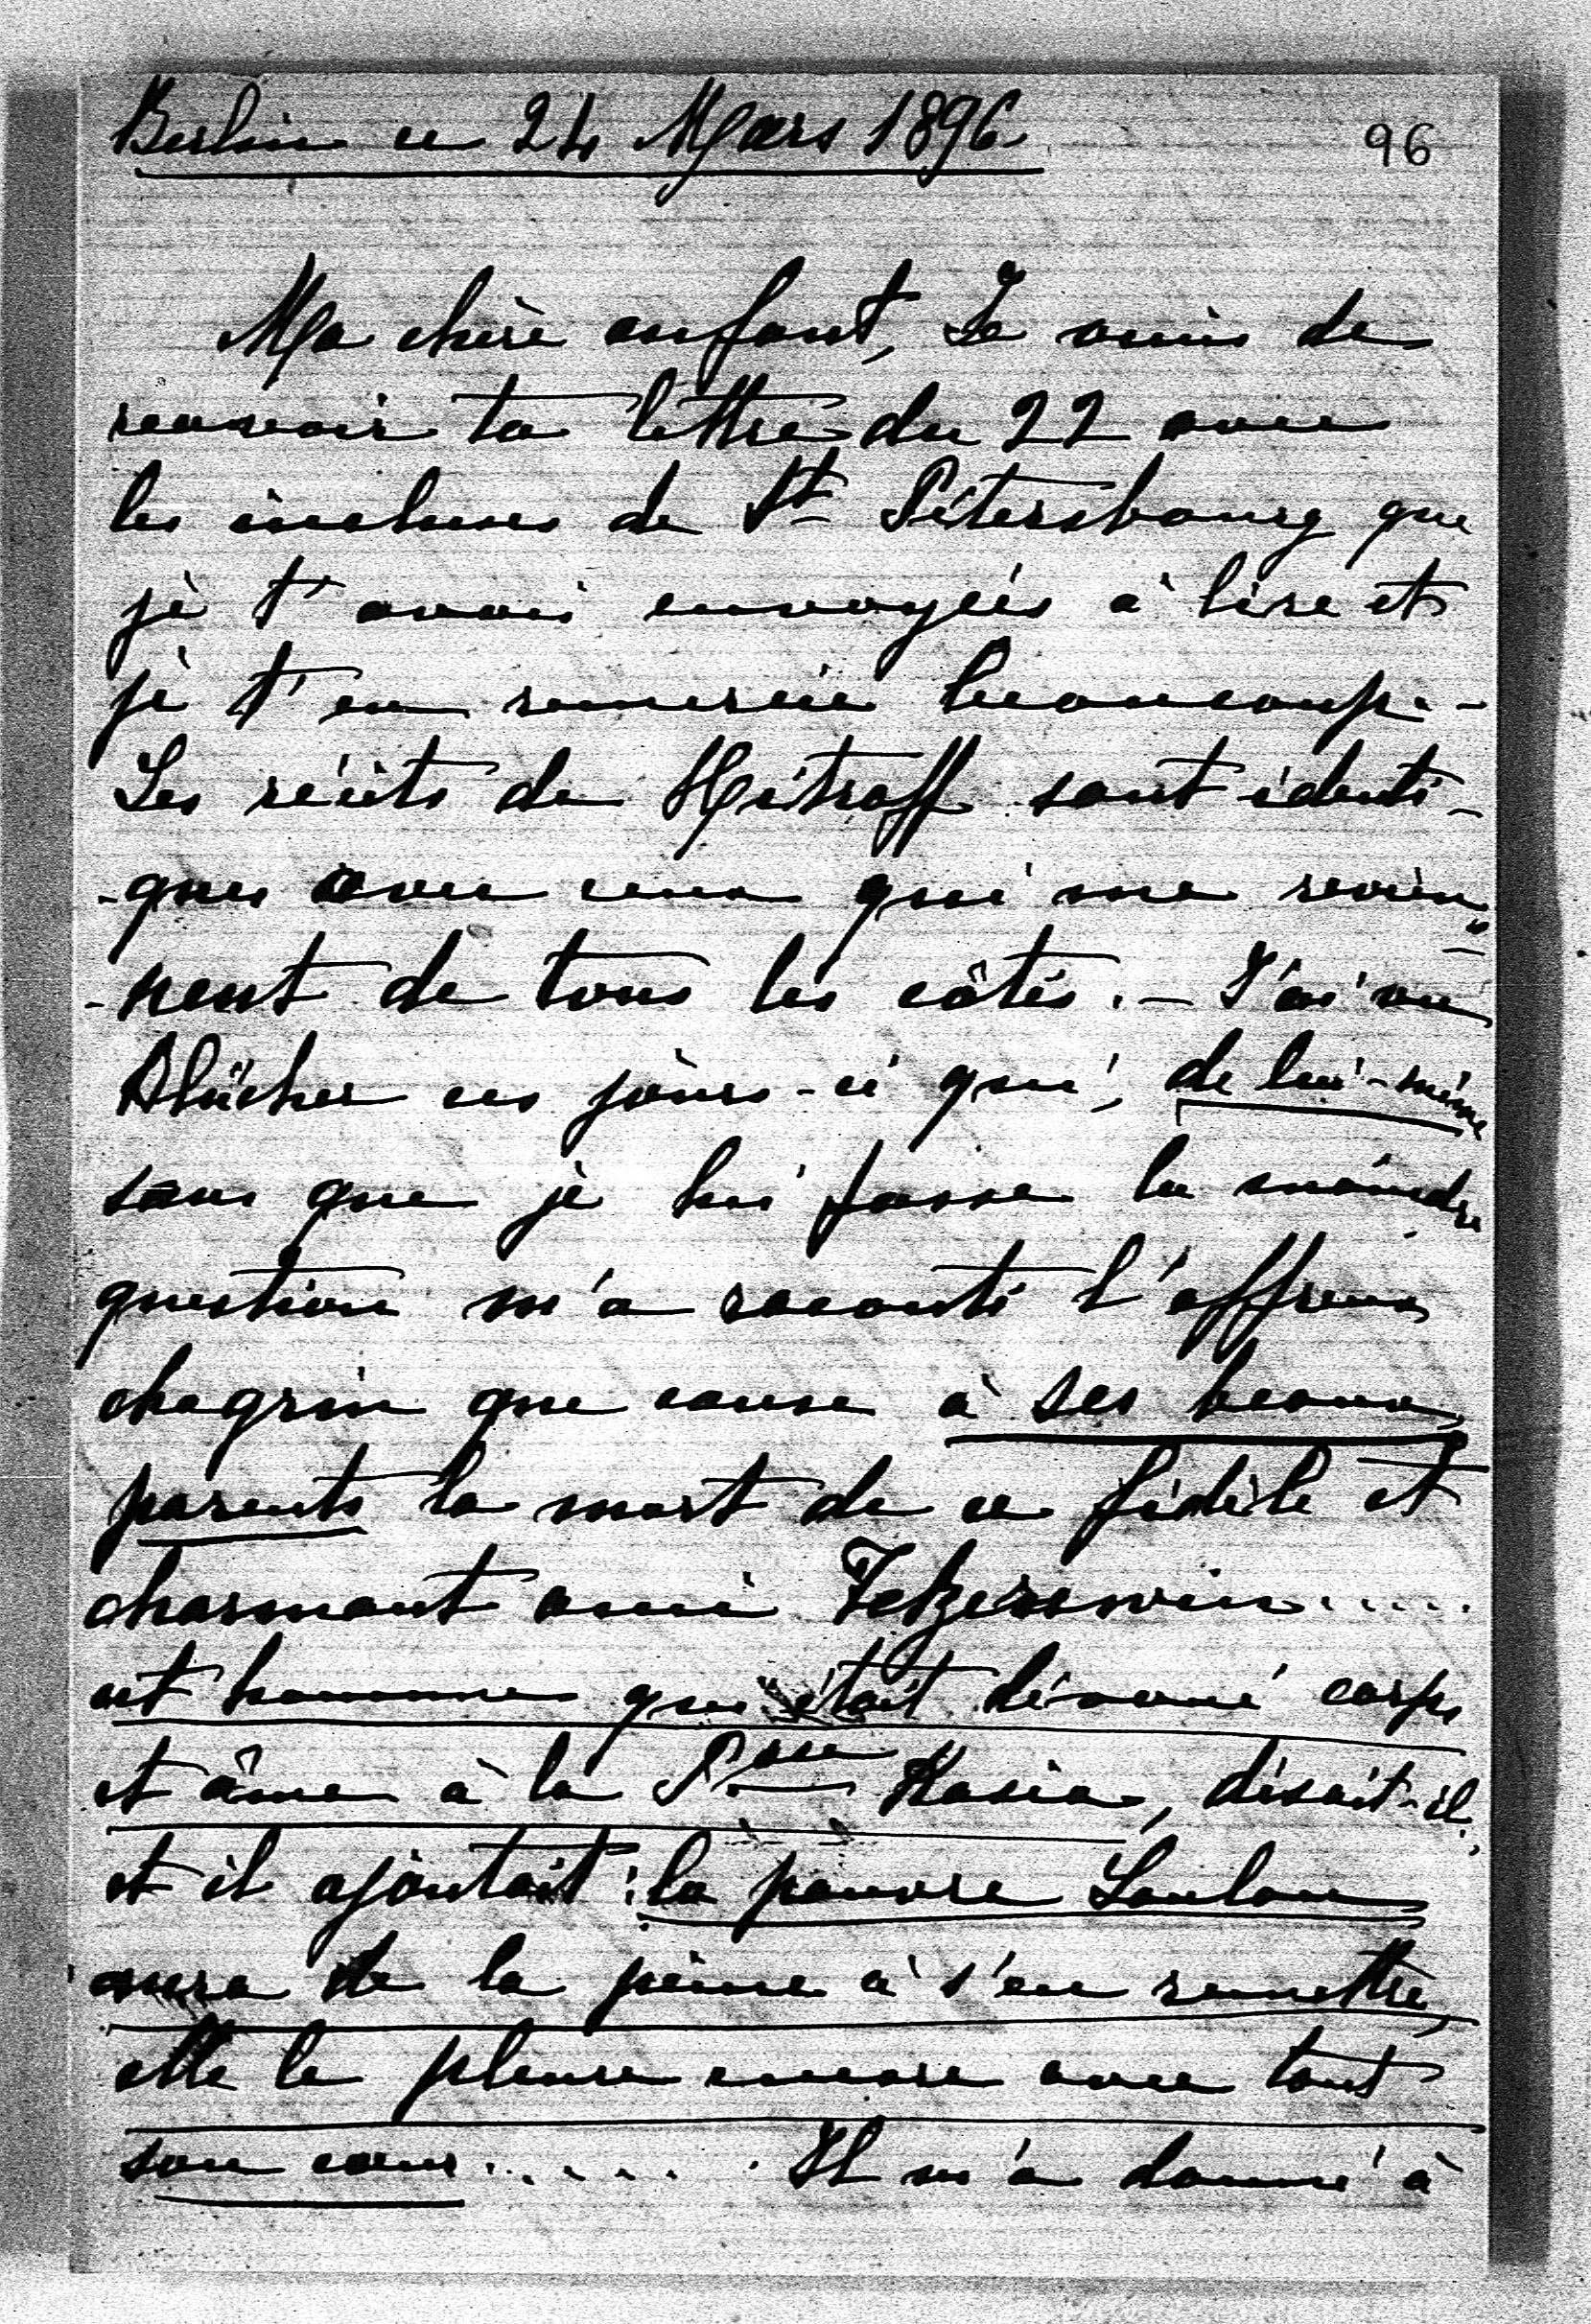 Berlin ce 24 Mars 1896.
96
Ma chère enfant, Je viens de
recevoir ta lettre du 22 avec
les incluses de St Pétersbourg que
je t'avais envoyées à lire et
je t'en remercie beaucoup. -
Les récits de Hitroff sont identi-
-ques avec ceux qui me revien-
-nent de tous les côtés. - J'ai vu
Blücher ces jours-ci qui, de lui-même
sans que je lui fasse la moindre
question m'a raconté l'affreux
chagrin que cause à ses beaux
parents la mort de ce fidèle et
charmant ami .....
cet homme qui était dévoué corps
et âme à la Psse Kasia, disait-il,
et il ajoutait : la pauvre Loulou
aura de la peine à s'en remettre,
elle le pleure encore avec tout
son cœur...... Il m'a donné à